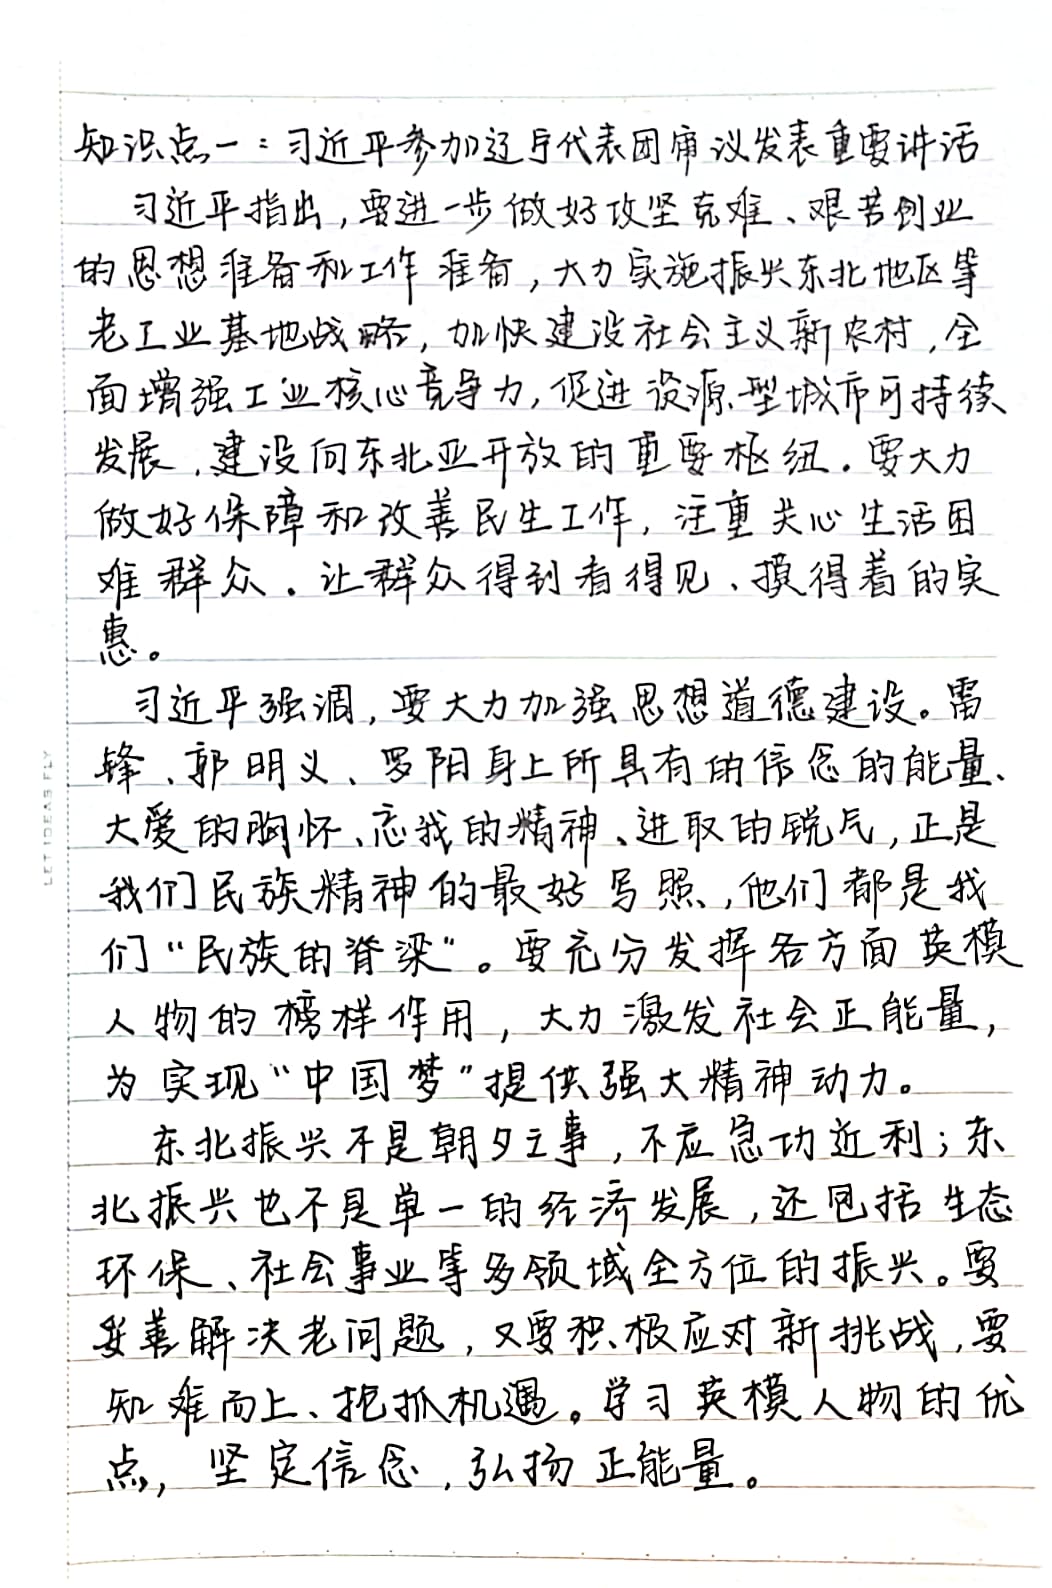 知识点一：习近平参加辽宁代表团审议发表重要讲话
习近平指出，要进一步做好攻坚克难、艰苦创业
的思想准备和工作准备，大力实施振兴东北地区等
老工业基地战略，加快建设社会主义新农村，全
面增强工业核心竞争力，促进资源型城市可持续
发展，建设向东北亚开放的重要枢纽。要大力
做好保障和改善民生工作，注重关心生活困
难群众。让群众得到看得见、摸得着的实
惠。
习近平强调，要大力加强思想道德建设。雷
锋、郭明义、罗阳身上所具有的信念的能量、
大爱的胸怀、忘我的精神、进取的锐气，正是
我们民族精神的最好写照，他们都是我
们“民族的脊梁”。要充分发挥各方面英模
人物的榜样作用，大力激发社会正能量，
为实现“中国梦”提供强大精神动力。
东北振兴不是朝夕之事，不应急功近利；东
北振兴也不是单一的经济发展，还包括生态
环保、社会事业等多领域全方位的振兴。要
妥善解决老问题，又要积极应对新挑战，要
知难而上、把抓机遇。学习英模人物的优
点，坚定信念，弘扬正能量。
LET IDEAS FLY